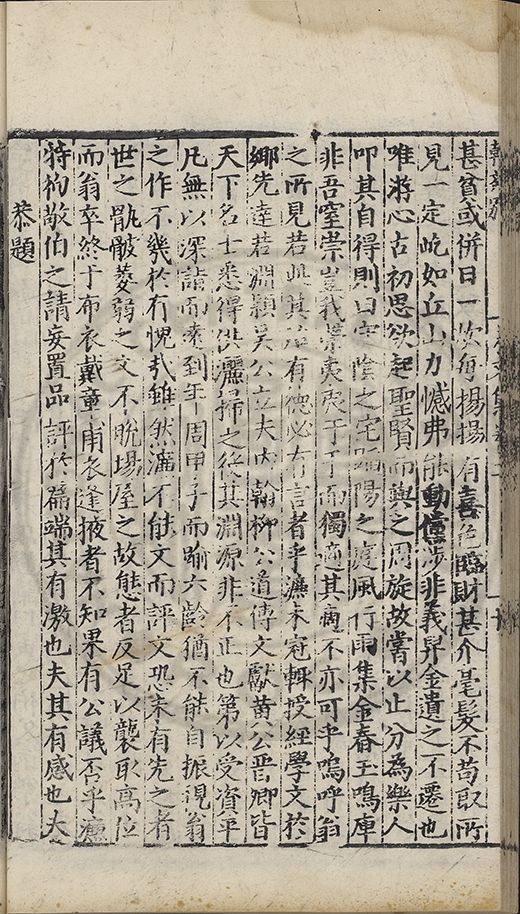 甚貧或併日一炊每揚揚有喜色臨財甚介毫髮不苟取所
見一定屹如丘山力憾弗能動僮涉非義舁金遺之不遷也
唯游心古初思欲起聖賢而與之周旋故嘗以止分為樂人
叩其自得則曰守陰之宅踰陽之庭風行雨集金舂玉鳴庫
非吾窒崇豈我榮夷夷于于而獨適其適不亦可乎嗚呼翁
之所見若此其有德必有言者乎濂未冠輒授經學文於
鄉先達若淵穎吳公立夫內翰柳公道傳文獻黃公晉卿皆
天下名士悉得供灑掃之役其淵源非不正也第以受資平
凡無以深詣而遠到年周甲子而踰六齡猶不能自振視翁
之作不幾於有愧哉雖然濂不能文而評文恐未有先之者
世之骫骳萎弱之文不脫場屋之故態者反足以襲取高位
而翁卒終于布衣戴章甫衣逢掖者不知果有公議否乎濂
特徇敬伯之請妄置品評於篇端其有激也夫其有感也夫
恭題